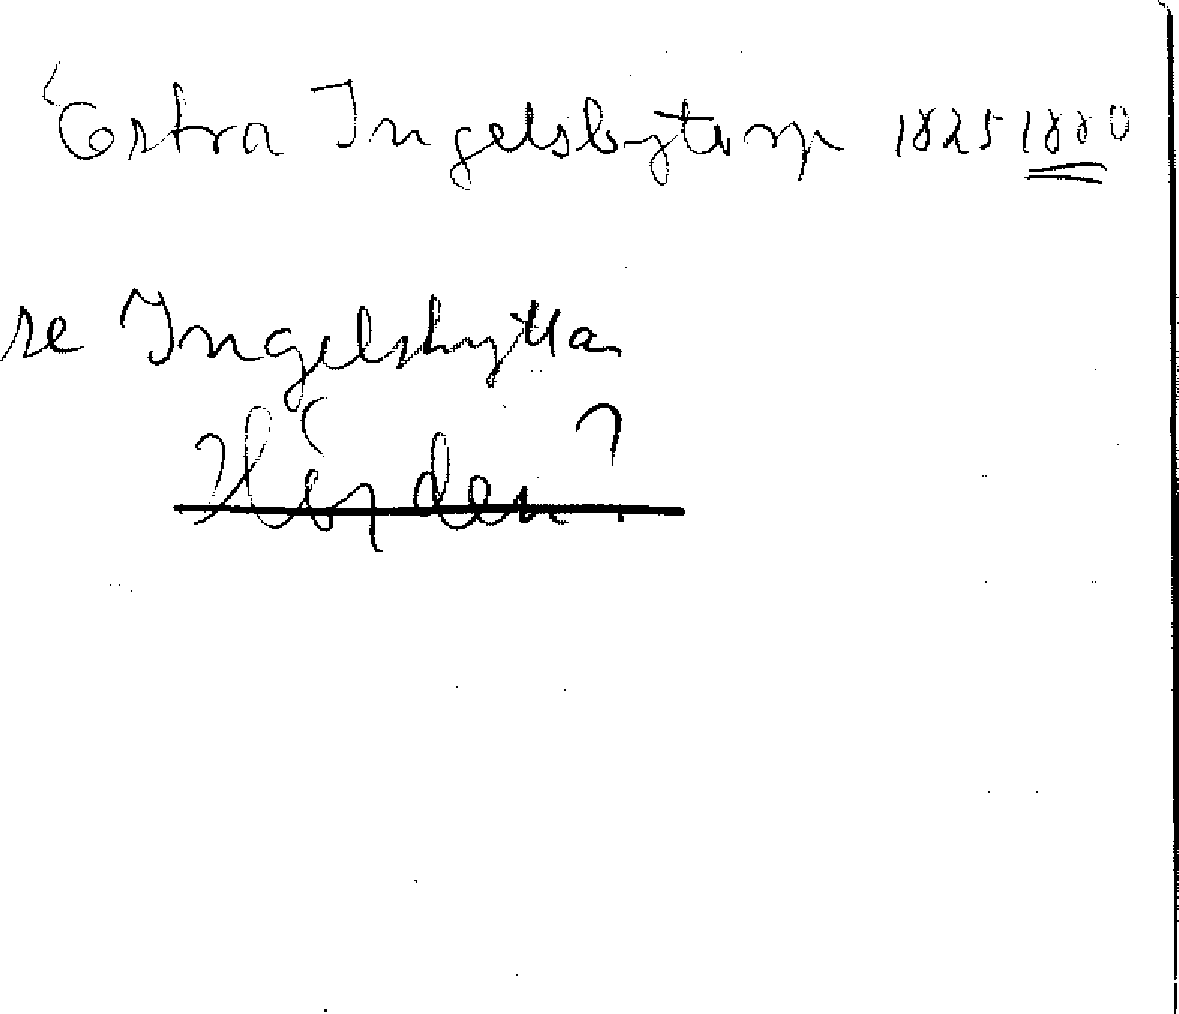 Östra Ingelsbytorp 1825 1880
se Ingelshyttan
Härden?